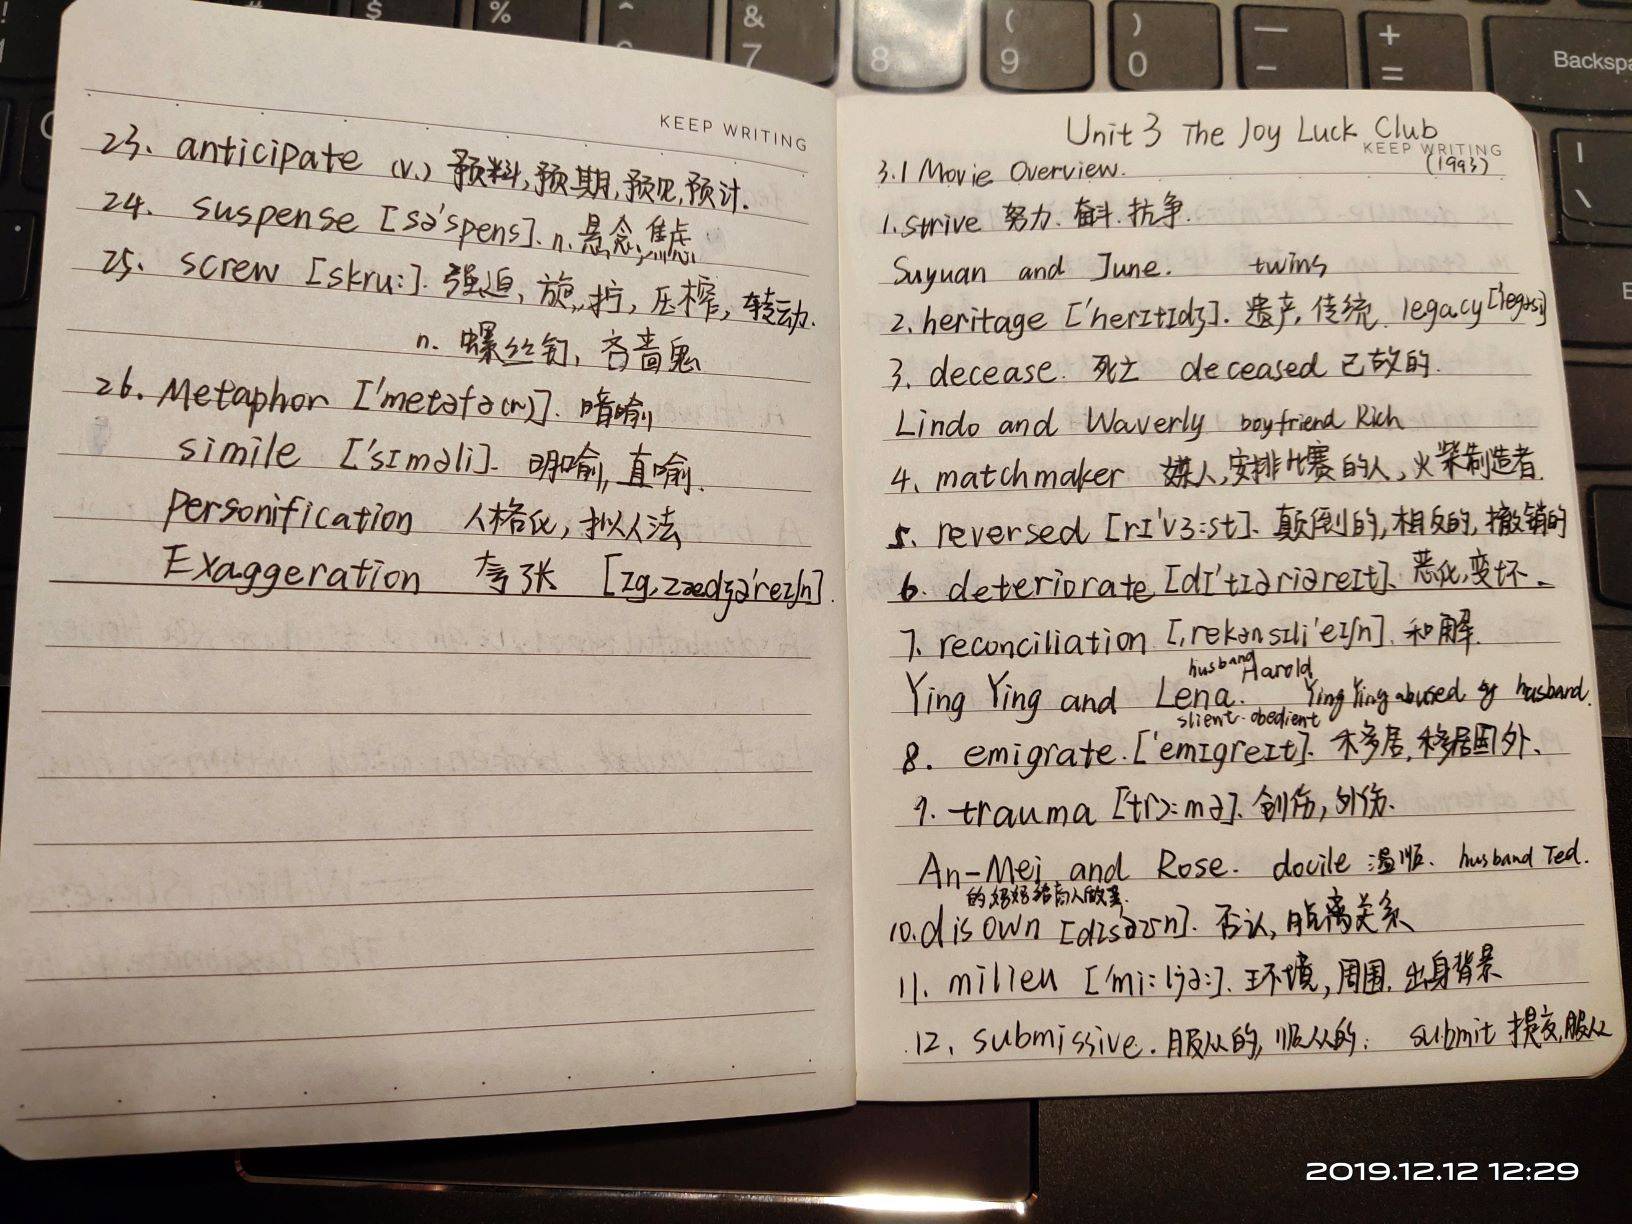 KEEP WRITING
23. anticipate (v.) 预料,预期,预见,预计.
24. suspense [sə'spens]. n. 悬念,焦虑
25. screw [skru:]. 强迫, 旋,拧, 压榨, 转动.
n. 螺丝钉, 吝啬鬼
26. Metaphor ['metəfə(r)]. 暗喻
simile ['sɪməli]. 明喻, 直喻.
personification 人格化, 拟人法
Exaggeration 夸张 [ɪg,zædʒə'reɪʃn]
Unit 3 The Joy Luck Club
KEEP WRITING
3.1 Movie Overview. (1993)
1. strive 努力. 奋斗. 抗争.
Suyuan and June. twins
2. heritage ['herɪtɪdʒ]. 遗产, 传统. legacy ['legəsi]
3. decease. 死亡 deceased 已故的.
Lindo and Waverly boyfriend Rich
4. matchmaker 媒人, 安排比赛的人, 火柴制造者.
5. reversed [rɪ'vɜ:st]. 颠倒的, 相反的, 撤销的
6. deteriorate [dɪ'tɪəriəreɪt]. 恶化, 变坏.
7. reconciliation [,rekənsɪli'eɪʃn]. 和解.
husband Harold
Ying Ying and Lena. Ying Ying abused by husband.
slient. obedient
8. emigrate. ['emɪgreɪt]. 移居, 移居国外.
9. trauma ['trɔ:mə]. 创伤, 外伤.
An-Mei and Rose. docile 温顺. husband Ted.
的妈妈给商人做妾.
10. disown [dɪs'əʊn]. 否认, 脱离关系
11. milieu ['mi:ljə:]. 环境, 周围. 出身背景
12. submissive. 服从的, 顺从的; submit 提交,服从
0
&
7
8
(
9
)
0
—
-
+
=
Backspa
$
%
2019.12.12 12:29